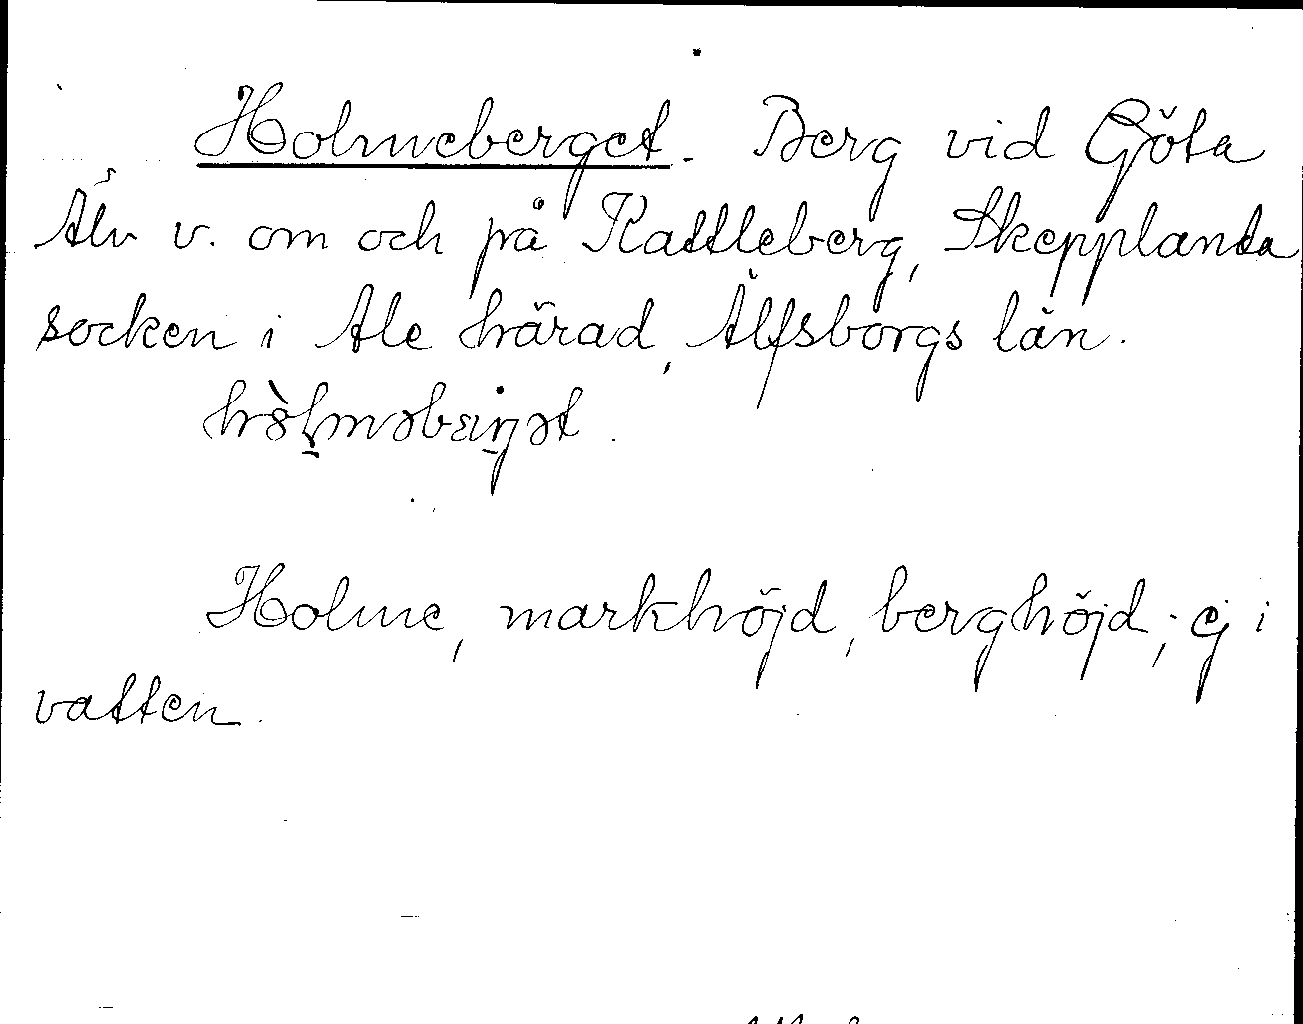 Holmeberget. Berg vid Göta
Älv v. om och på Kattleberg, Skepplanda
socken i Ale härad, Älfsborgs län.
Holme, markhöjd, berghöjd; ej i
vatten.